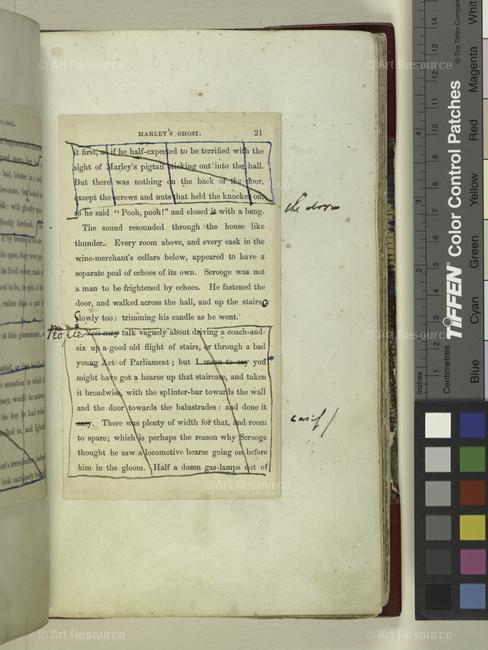 MARLEY'S GHOST. 21
it first, as if he half-expected to be terrified with the
sight of Marley's pigtail sticking out into the hall.
But there was nothing on the back of the door,
except the screws and nuts that held the knocker on;
so he said "Pooh, pooh!" and closed it with a bang.
the door
The sound resounded through the house like
thunder. Every room above, and every cask in the
wine-merchant's cellars below, appeared to have a
separate peal of echoes of its own. Scrooge was not
a man to be frightened by echoes. He fastened the
door, and walked across the hall, and up the stairs
slowly too: trimming his candle as he went.
People You may talk vaguely about driving a coach-and-
six up a good old flight of stairs, or through a bad
young Act of Parliament; but I mean to say you
might have got a hearse up that staircase, and taken
it broadwise, with the splinter-bar towards the wall
and the door towards the balustrades: and done it
easy. There was plenty of width for that, and room
to spare; which is perhaps the reason why Scrooge
thought he saw a locomotive hearse going on before
him in the gloom. Half a dozen gas-lamps out of
TIFFEN Color Control Patches
© The Tiffen Company
Inches
Centimetres
Blue
Cyan
Green
Yellow
Red
Magenta
White
© Art Resource